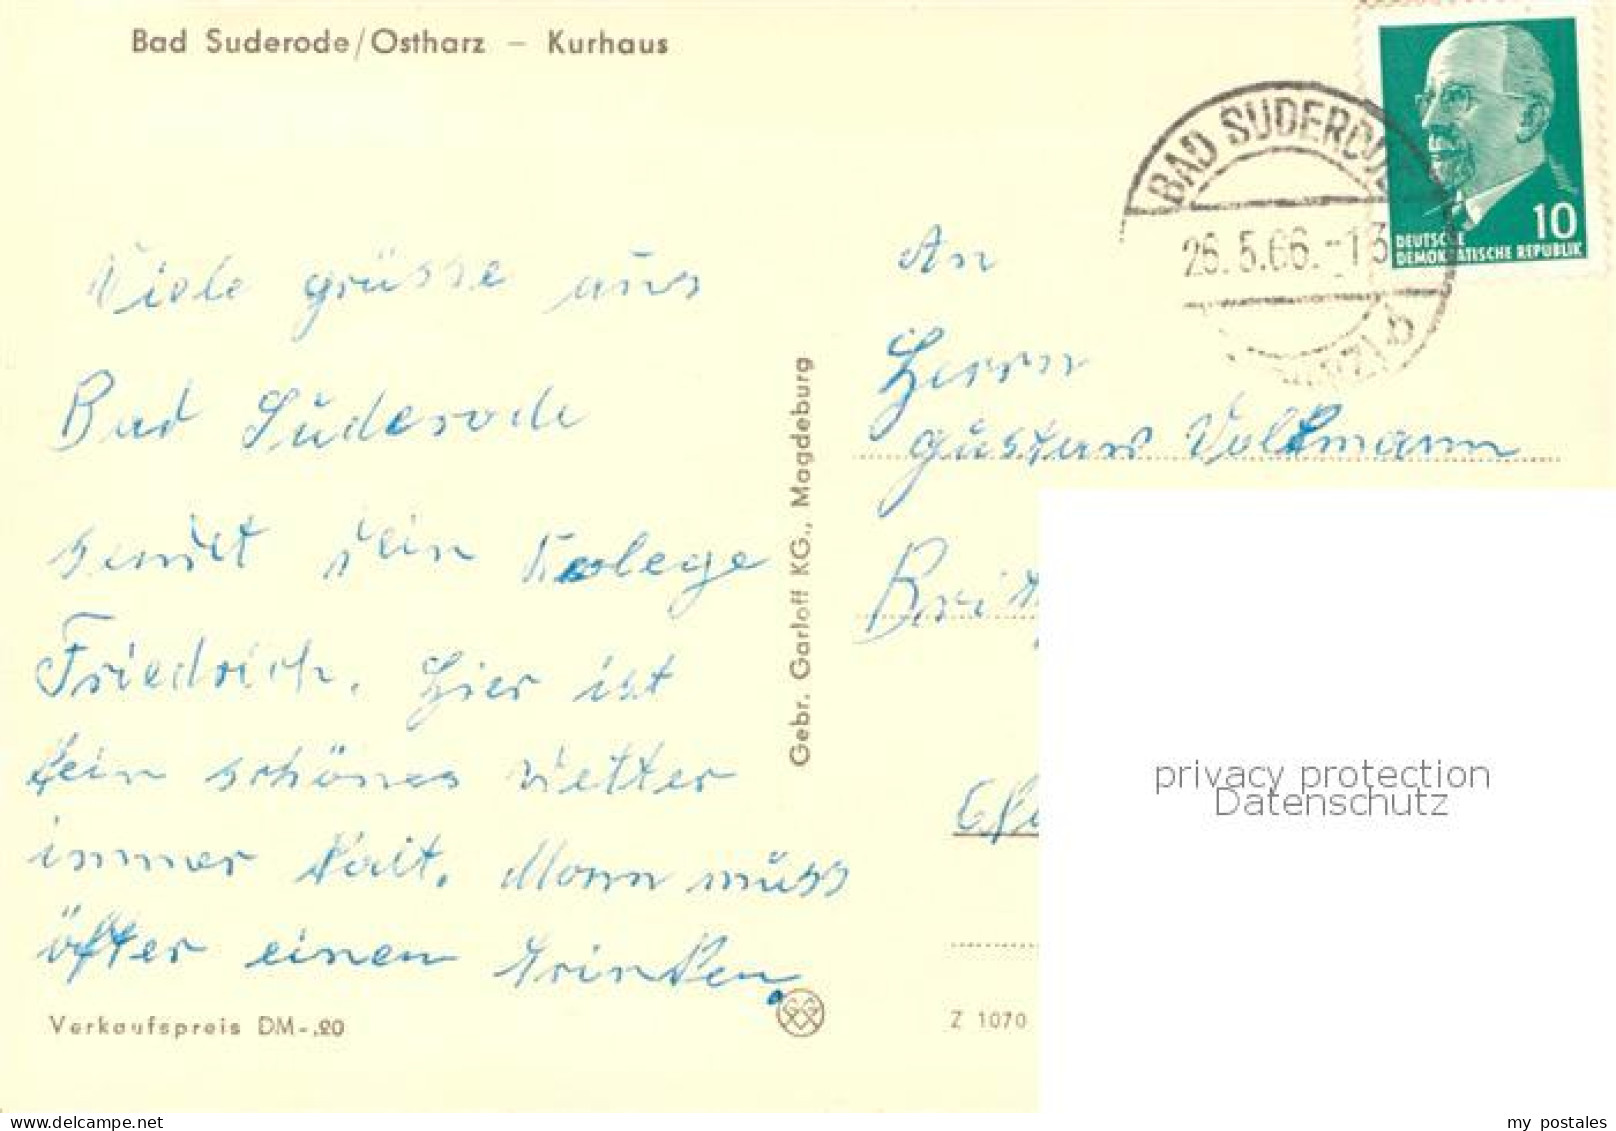 Bad Suderode/Ostharz – Kurhaus
BAD SUDERODE
26.5.66.-13
(HARZ) b
10
DEUTSCHE
DEMOKRATISCHE REPUBLIK
Viele grüsse aus
Bad Suderode
sendet dein Kolege
Friedrich. Hier ist
kein schönes Wetter
immer Kalt. Mann müss
öfter einen trinken.
Verkaufspreis DM-,20
Gebr. Garloff KG., Magdeburg
An
Herrn
Gustav Volkmann
Z 1070
privacy protection
Datenschutz
my postales
www.delcampe.net